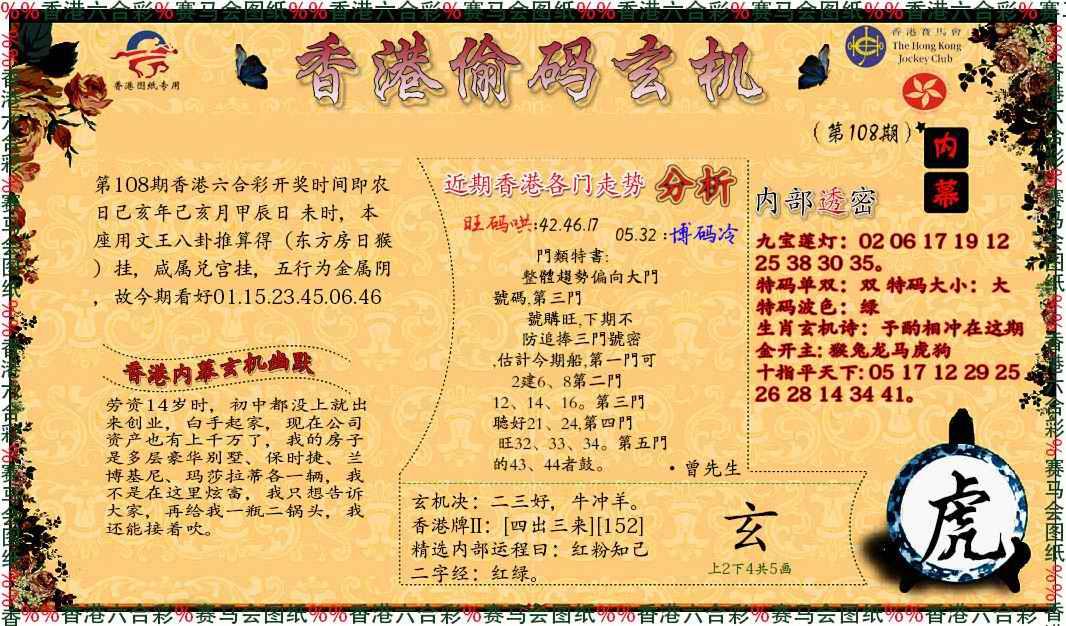 %%香港六合彩%赛马会图纸%%香港六合彩%赛马会图纸%%香港六合彩%赛马会图纸%%香港六合彩%赛
香港图纸专用
香港偷码玄机
香港賽馬會
The Hong Kong
Jockey Club
(第108期)
内幕
第108期香港六合彩开奖时间即农
日己亥年己亥月甲辰日 未时，本
座用文王八卦推算得（东方房日猴
）挂，咸属兑宫挂，五行为金属阴
，故今期看好01.15.23.45.06.46
香港内幕玄机幽默
劳资14岁时，初中都没上就出
来创业，白手起家，现在公司
资产也有上千万了，我的房子
是多层豪华别墅、保时捷、兰
博基尼、玛莎拉蒂各一辆，我
不是在这里炫富，我只想告诉
大家，再给我一瓶二锅头，我
还能接着吹。
近期香港各门走势 分析
旺码哄:42.46.17 05.32 :博码冷
門類特書:
整體趨勢偏向大門
號碼,第三門
號購旺,下期不
防追捧三門號密
,估計今期船,第一門可
2建6、8第二門
12、14、16。第三門
聽好21、24,第四門
旺32、33、34。第五門
的43、44者鼓。
·曾先生
玄机决：二三好，牛冲羊。
香港牌II：[四出三来][152]
精选内部运程曰：红粉知己
二字经：红绿。
玄
上2下4共5画
内部透密
九宝莲灯：02 06 17 19 12
25 38 30 35。
特码单双：双 特码大小：大
特码波色：绿
生肖玄机诗：予酌相冲在这期
金开主: 猴兔龙马虎狗
十指平天下: 05 17 12 29 25
26 28 14 34 41。
虎
香%%香港六合彩%赛马会图纸%%香港六合彩%赛马会图纸%%香港六合彩%赛马会图纸%%香港六合彩